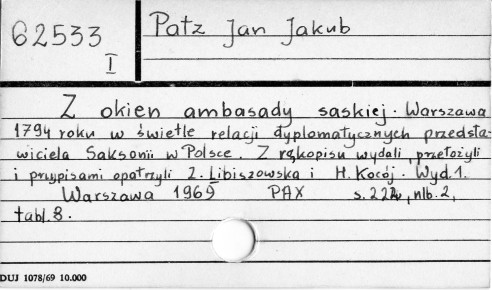 62533
I
Patz Jan Jakub
Z okien ambasady saskiej. Warszawa
1794 roku w świetle relacji dyplomatycznych przedsta-
wiciela Saksonii w Polsce. Z rękopisu wydali, przełożyli
i przypisami opatrzyli Z. Libiszowska i H. Kocój. Wyd. 1.
Warszawa 1969 PAX s. , nlb. 2,
tabl. 8.
DUJ 1078/69 10.000